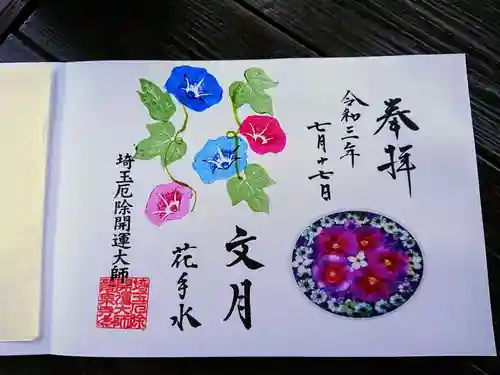 奉拝
令和三年
七月十七日
文月
花手水
埼玉厄除開運大師